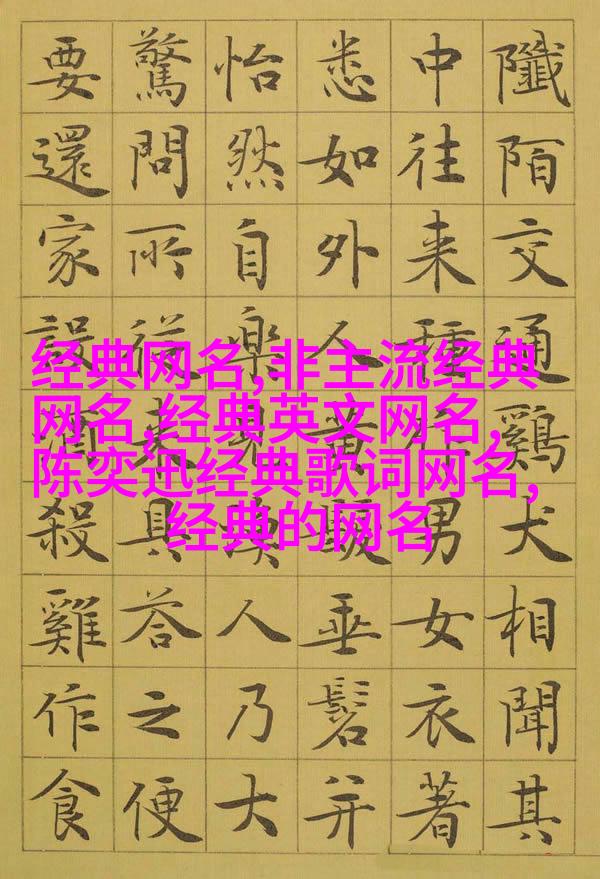 陌交通鷄犬相聞其
中往来種作男女衣著
悉如外人黄髮垂髫并
怡然自樂見人乃大
驚問所從来具答之便
要還家設酒殺雞作食
经典网名,非主流经典
网名,经典英文网名,
陈奕迅经典歌词网名,
经典的网名